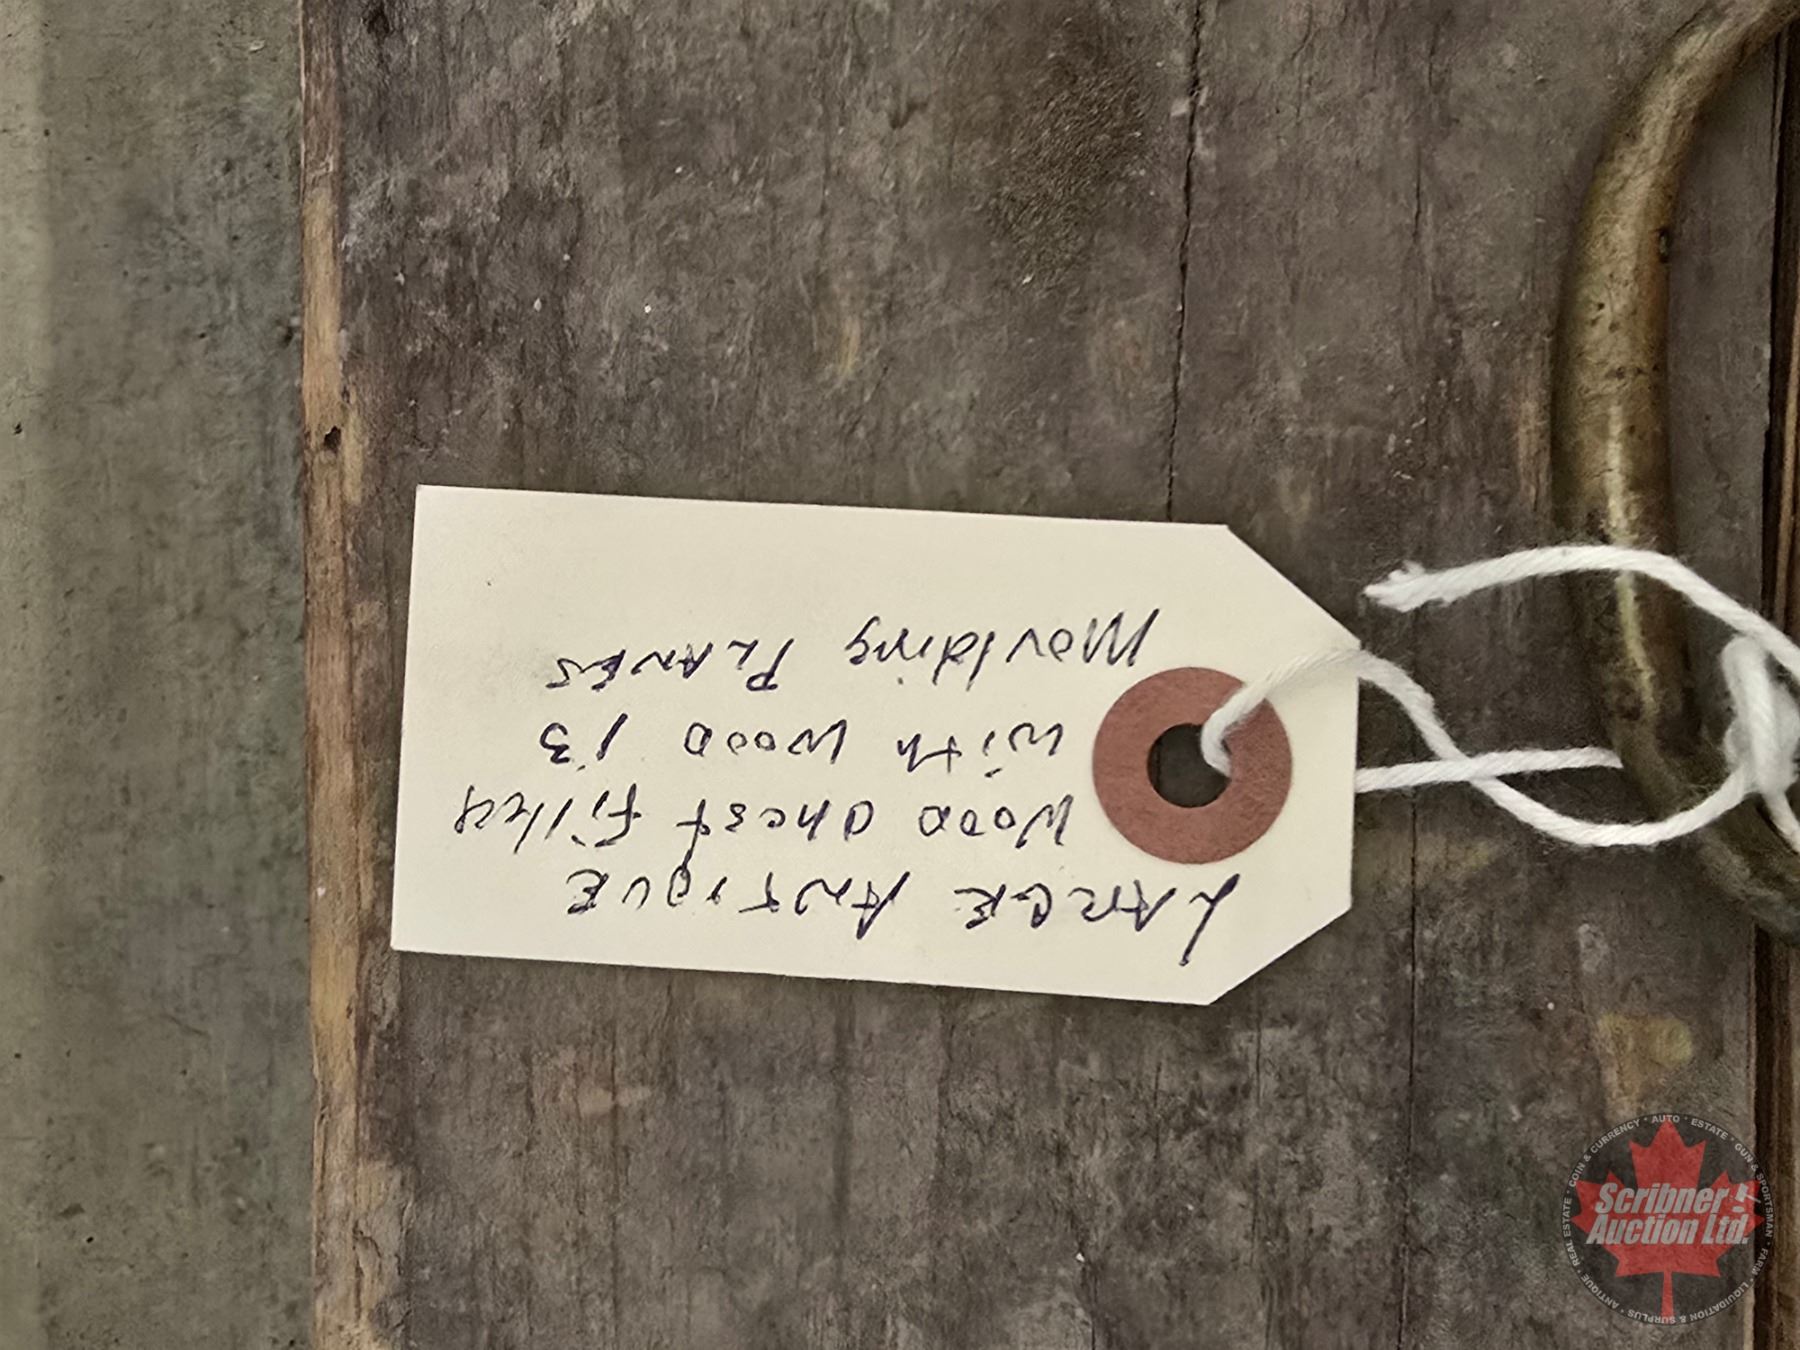 LARGE ANTIQUE
WOOD Chest filled
with WOOD 13
Moulding PLANES
Scribner!
Auction Ltd.
COIN & CURRENCY · AUTO · ESTATE · GUN & SPORTSMAN · FARM · LIQUIDATION & SURPLUS · ANTIQUE · REAL ESTATE ·